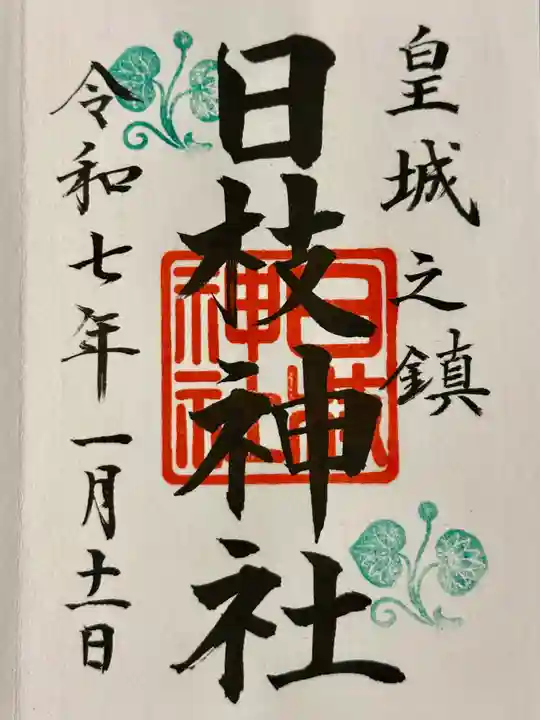 皇城之鎮
日枝神社
日枝神社
令和七年一月十一日